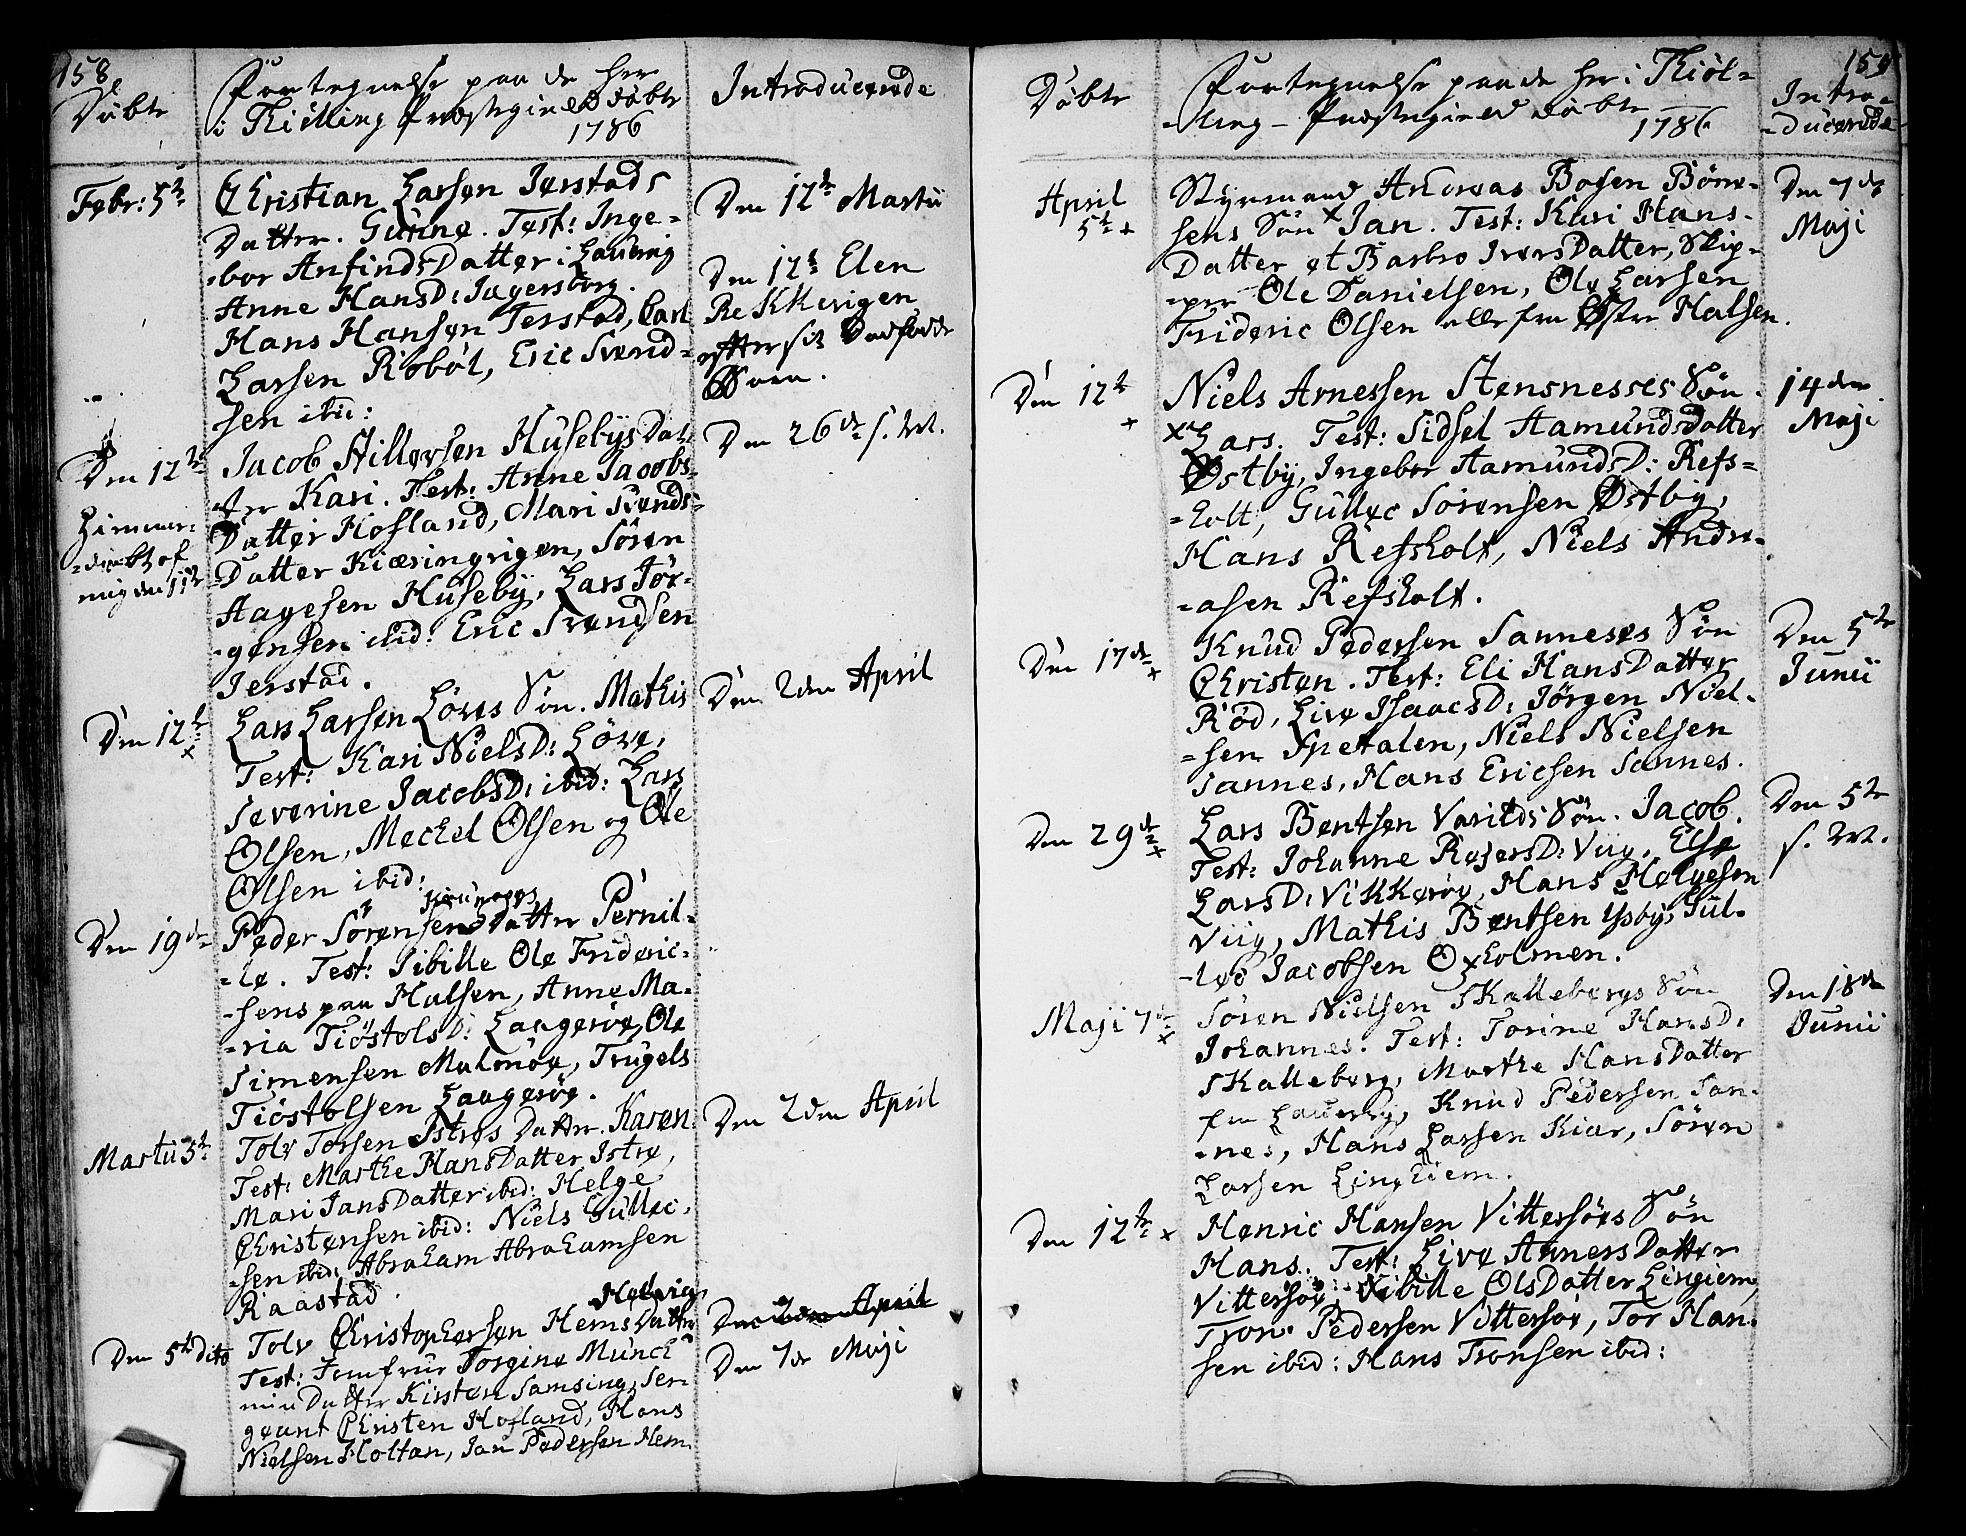 158
Døbte
Fortegnelse paa de her
i Thiölling Præstegield døbte
1786
Introducerede
Febr: 5te
Christian Larsen Jerstads
Datter. Gunne. Test: Inge-
-bor AnfindsDatter i Laurvig
Anne HansD: Jagersborg.
Hans Hansen Jerstad, Carl
Larsen Robøl, Eric Svend-
sen ibid:
Den 12te Martii
Den 12te Elen
Rekkevigen
efter sit Dødfødde
Barn.
Den 12te
Hiemme-
-døbt af
mig den 11te
Jacob Hillersen HusebysDat-
-ter Kari. Test: Anne Jacobs-
Datter Hofland, Mari Svends-
-Datter Kiæringvigen, Sören
Aagesen Huseby, Lars Jör-
-gensen ibid: Eric Svendsen
Jerstad.
Den 26de s. M.
Den 12te
x
Lars Larsen Löves Søn. Mathis
Test: Kari NielsD: Löve,
Severine JacobsD: ibid: Lars
Olsen, Mechel Olsen og Ole
Olsen ibid:
Den 2den April
Den 19de
Peder Sörensens Datter Pernil-
-le. Test: Sibille Ole Frideric-
-sens paa Halsen, Anne Ma-
-ria TiöstolsD: Laageröe, Ole
Simensen Malmöe, Trugels
Tiöstolsen Laageröe.
Martii 5te
Tolv Torsen Istres Datter. Karen.
Test: Marthe HansDatter Istre,
Mari JansDatter ibid: Helge
Christensen ibid: Niels Gullic-
-sen ibid: Abraham Abrahamsen
Raastad.
Den 2den April
Den 5te dito
Hedvig
Tolv Christophersen Hems Datter
Test: Jomfrue Torgine Munch
min Datter Kirsten Samsing, Ser-
geant Christen Hofland, Hans
Nielsen Holtan, Jan Pedersen Hem
Den 2den April
Den 7de Maji
159
Døbte
Fortegnelse paa de her i Thiöl-
-ling - Præstegield døbte
1786
Intro-
-ducerede
April
5te x
Styrmand Andreas Bosen Börre-
sens Søn x Jan. Test: Kari Hans-
Datter et Barbro IversDatter, Skip-
-per Ole Danielsen, Ole Larsen
Frideric Olsen alle fra Østre Halsen.
Den 7de
Maji
Den 12te
x
Niels Arnessen Stensnesses Søn.
x Lars. Test: Sidsel AamundsDatter
Østby, Ingebor AamundsD: Refs-
-holt, Gullec Sörensen Østby,
Hans Refsholt, Niels Andre-
-asen Refsholt.
14den
Maji
Den 17de
x
Knud Pedersen Sanneses Søn
Christen. Test: Eli HansDatter
Röd, Live IsaacsD: Jörgen Niel-
-sen Spetalen, Niels Nielsen
Sannes, Hans Ericsen Sannes.
Den 5te
Junii
Den 29de
x
Lars Bentsen Varilds Søn. Jacob.
Test: Johanne RejersD: Viig, Else
LarsD: Vikkeröe, Hans Helgesen
Viig, Mathis Bentsen Ysby, Gul-
-lec Jacobsen Oxholmen.
Den 5te
s. M.
Maji 7de
x
Sören Nielsen Skallebergs Søn
Johannes. Test: Torine HansD:
Skalleberg, Marthe HansDatter
fra Laurvig, Knud Pedersen San-
-nes, Hans Larsen Kiær, Sören
Larsen Linghiem.
Den 18de
Junii
Den 12te x
Henric Hansen Vittersöes Søn
Hans. Test: Live AnnersDatter
Vittersöe, Sibille OlsDatter Lingiem,
Tron Pedersen Vittersöe, Tor Han-
sen ibid: Hans Tronsen ibid: